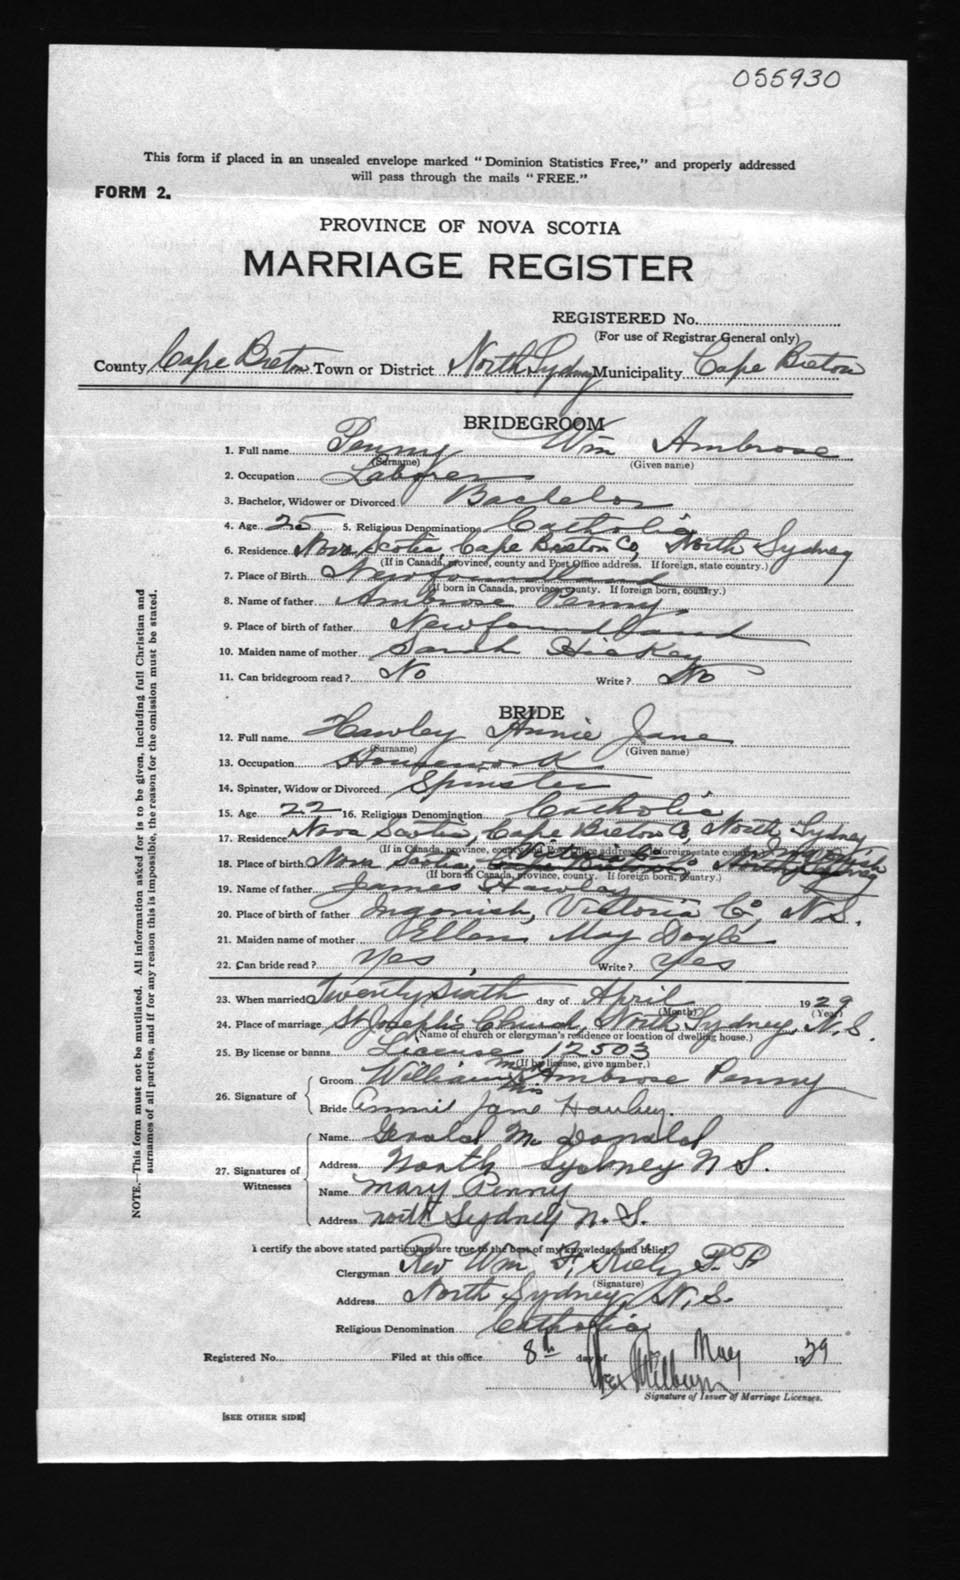 055930
This form if placed in an unsealed envelope marked "Dominion Statistics Free," and properly addressed
will pass through the mails "FREE."
FORM 2.
PROVINCE OF NOVA SCOTIA
MARRIAGE REGISTER
REGISTERED No.
(For use of Registrar General only)
County Cape Breton Town or District North Sydney Municipality Cape Breton
BRIDEGROOM
1. Full name Penny Wm Ambrose
(Surname) (Given name)
2. Occupation Laborer
3. Bachelor, Widower or Divorced Bachelor
4. Age 25 5. Religious Denomination Catholic
6. Residence Nova Scotia, Cape Breton Co, North Sydney
(If in Canada, province, county and Post Office address. If foreign, state country.)
7. Place of Birth Newfoundland
(If born in Canada, province, county. If foreign born, country.)
8. Name of father Ambrose Penny
9. Place of birth of father Newfoundland
10. Maiden name of mother Sarah Hickey
11. Can bridegroom read? No Write? No
BRIDE
12. Full name Hawley Annie Jane
(Surname) (Given name)
13. Occupation Housework
14. Spinster, Widow or Divorced Spinster
15. Age 22 16. Religious Denomination Catholic
17. Residence Nova Scotia, Cape Breton Co, North Sydney
(If in Canada, province, county and Post Office address. If foreign state country.)
18. Place of birth Nova Scotia, Victoria Co Ingonish
(If born in Canada, province, county. If foreign born, country.)
19. Name of father James Hawley
20. Place of birth of father Ingonish, Victoria Co, N.S.
21. Maiden name of mother Ellen May Doyle
22. Can bride read? Yes, Write? Yes
23. When married Twenty Sixth day of April 1929
(Month) (Year)
24. Place of marriage St Joseph's Church, North Sydney, N.S.
(Name of church or clergyman's residence or location of dwelling house.)
25. By license or banns License 12503
(If by license, give number.)
26. Signature of
Groom William Ambrose Penny
Bride Annie Jane Hawley.
27. Signatures of Witnesses
Name Gerald McDonald
Address North Sydney N S.
Name Mary Penny
Address North Sydney N. S.
I certify the above stated particulars are true to the best of my knowledge and belief.
Clergyman Rev Wm F. Kiely P. P
(Signature)
Address North Sydney, N.S.
Religious Denomination Catholic
Registered No. Filed at this office 8th day of May 1929
Signature of Issuer of Marriage Licenses.
[SEE OTHER SIDE]
NOTE.—This form must not be mutilated. All information asked for is to be given, including full Christian and
surnames of all parties, and if for any reason this is impossible, the reason for the omission must be stated.